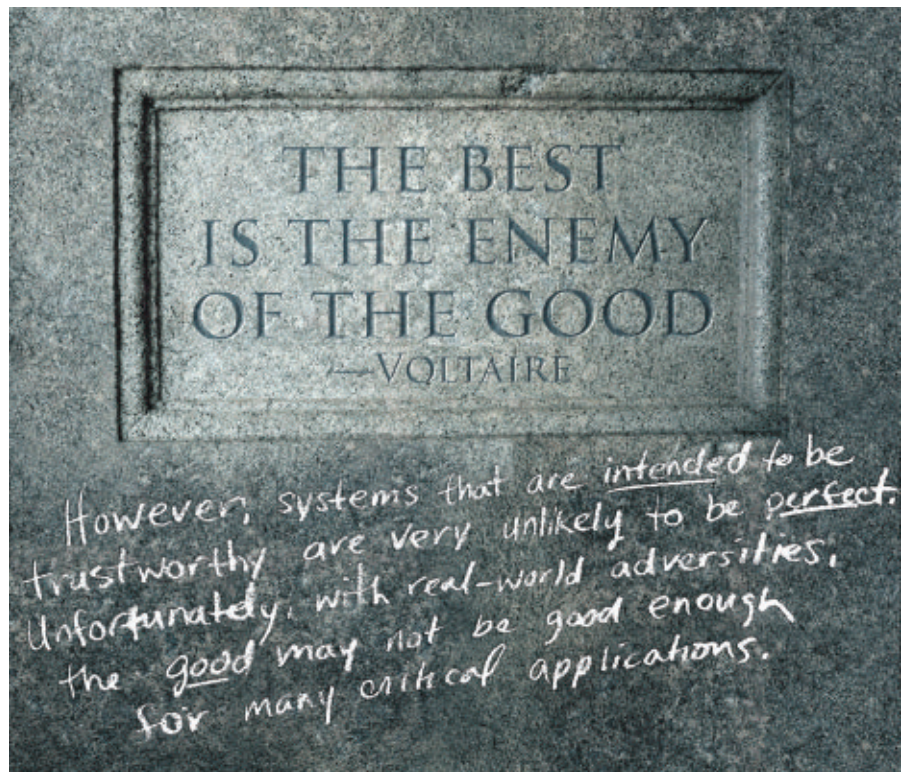 THE BEST
IS THE ENEMY
OF THE GOOD
—VOLTAIRE
However, systems that are intended to be
trustworthy are very unlikely to be perfect.
Unfortunately, with real-world adversities,
the good may not be good enough
for many critical applications.